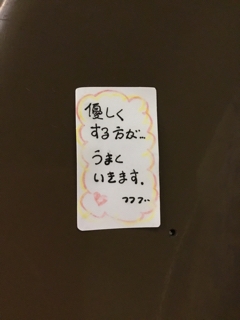 優しく
する方が...
うまく
いきます。
フフフ..